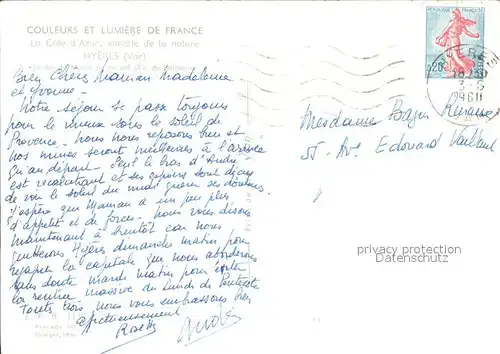 COULEURS ET LUMIÈRE DE FRANCE
La Côte d'Azur, miracle de la nature
HYÈRES (Var)
Bien Chers Maman Madeleine
et Yvonne -
Notre séjour se passe toujours
pour le mieux sous le soleil de
Provence - nous nous reposons bien et
nos mines seront meilleures à l'arrivée
qu'au départ. Seul le bras d'André
est récalcitrant et ses espoirs sont déçus
de voir le soleil du midi guérir ses douleurs.
J'espère que Maman a un peu plus
d'appétit et de forces - nous vous disons
maintenant à bientôt car nous
quitterons Hyères dimanche matin pour
regagner la capitale que nous aborderons
sans doute mardi matin pour éviter
la rentrée massive du Lundi de Pentecôte
Toutes trois nous vous embrassons bien
affectueusement
André
REPUBLIQUE FRANÇAISE
0,20
HYERES
1961
Mesdames
55 Ave Edouard Vaillant
privacy protection
Datenschutz